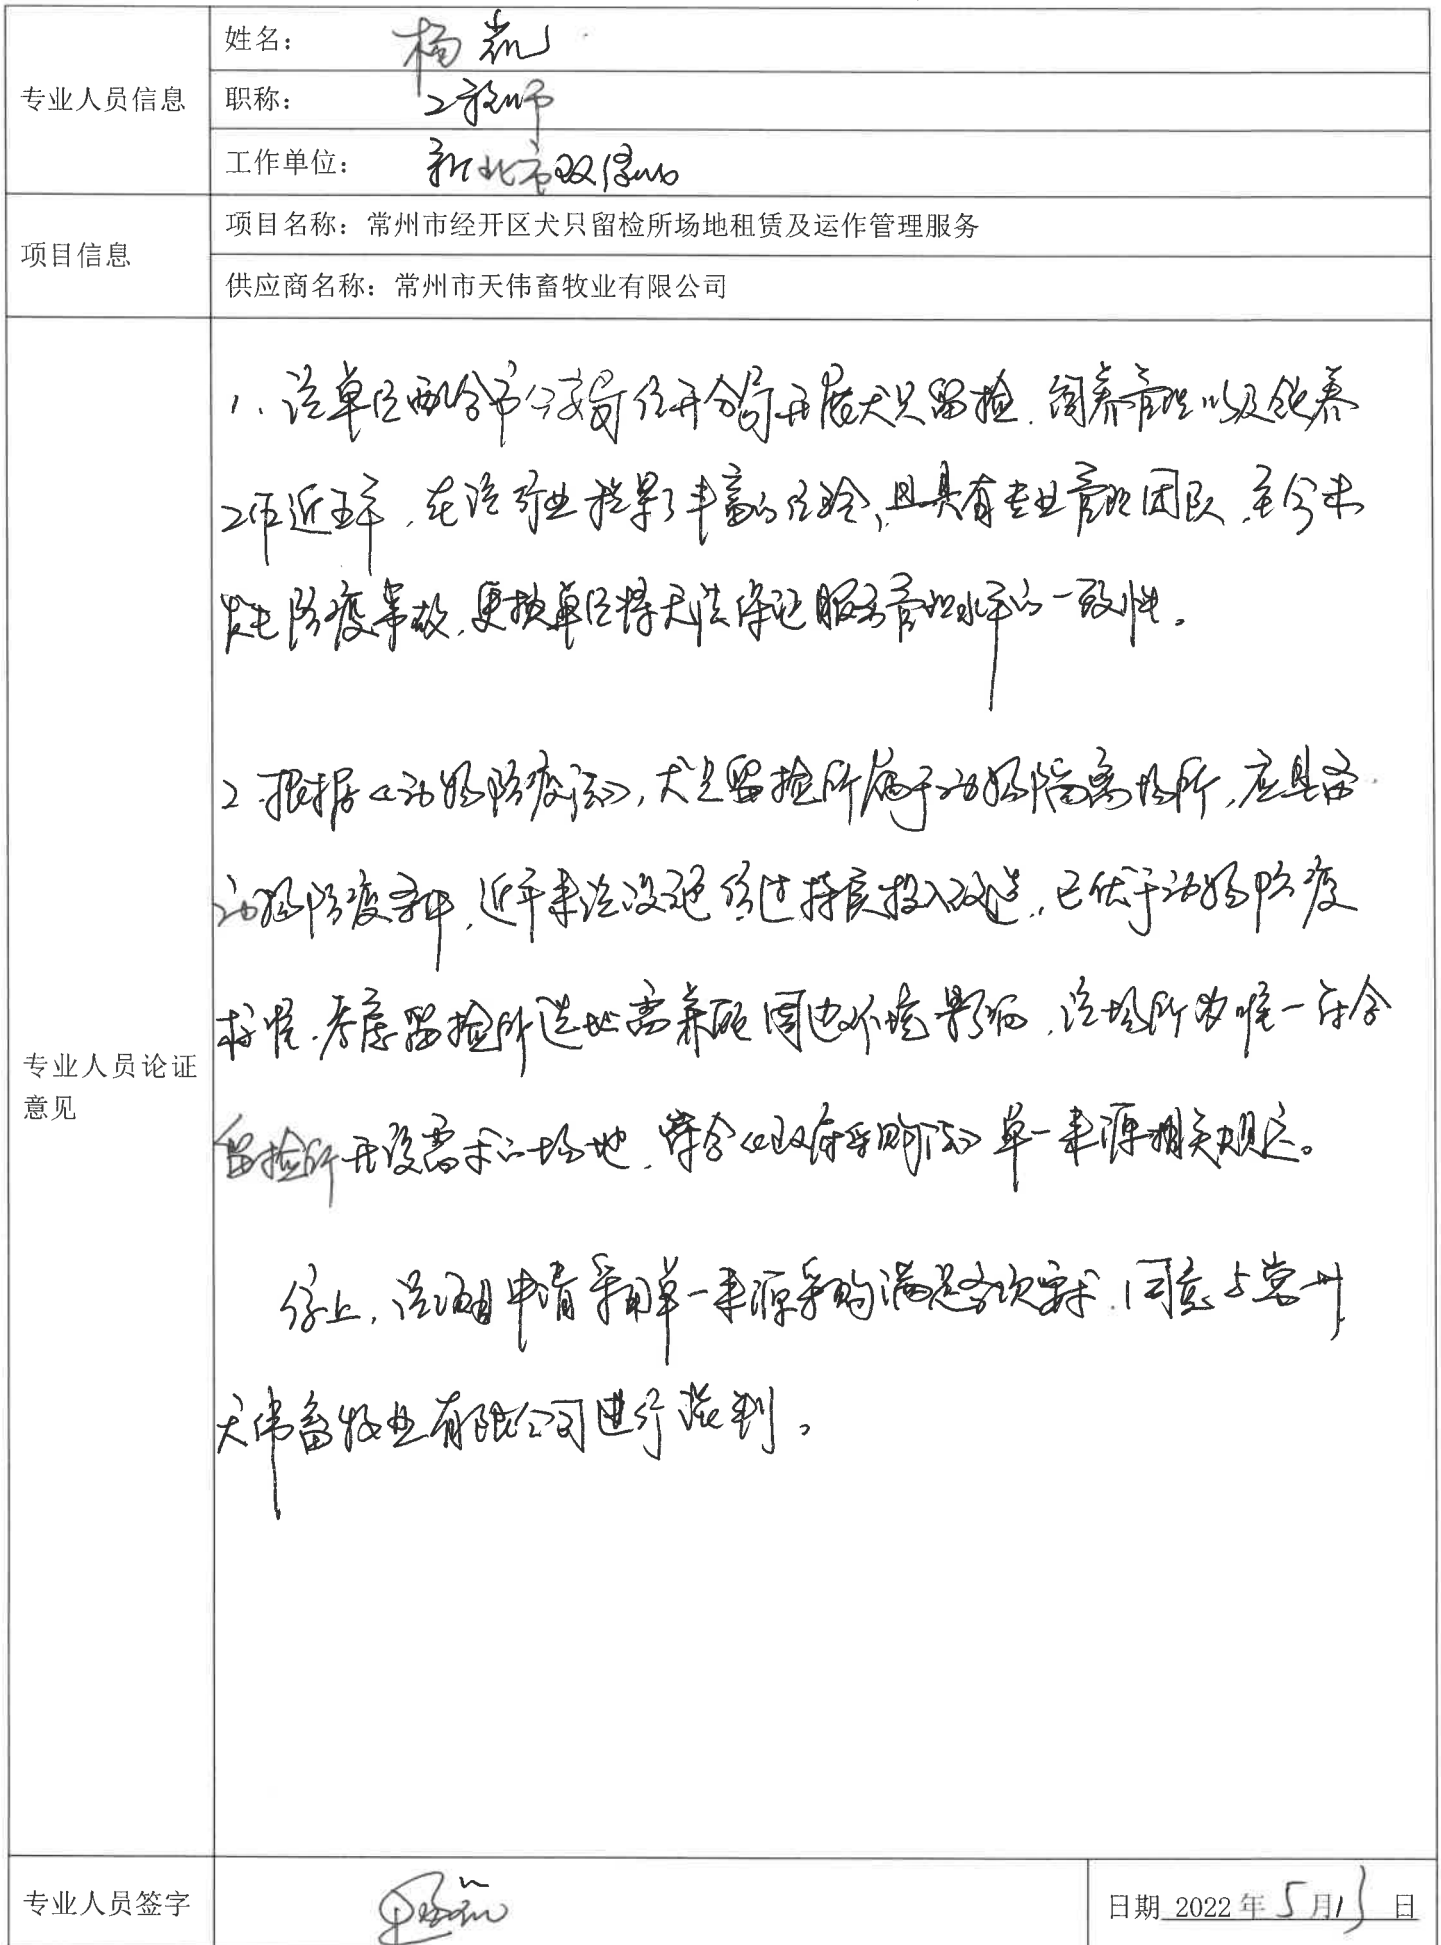 专业人员信息
姓名： 杨凯
职称： 工程师
工作单位： 新北市政绿化
项目信息
项目名称：常州市经开区犬只留检所场地租赁及运作管理服务
供应商名称：常州市天伟畜牧业有限公司
专业人员论证
意见
1、该单位配合市公安局经开分局开展犬只留检、饲养管理以及领养
工作近五年，在该行业积累了丰富的经验，且具有专业管理团队，至今未
发生防疫事故，更换单位将无法保证服务管理水平的一致性。
2.根据《动物防疫法》，犬只留检所属于动物隔离场所，应具备
动物防疫条件，近年来该设施经过持续投入改造，已优于动物防疫
标准，考虑留检所选地需兼顾周边环境影响，该场所为唯一符合
留检所开设需求的场地，符合《政府采购法》单一来源相关规定。
综上，该项目申请采用单一来源采购满足各项要求，同意与常州
天伟畜牧业有限公司进行谈判。
专业人员签字
日期 2022年5月13日